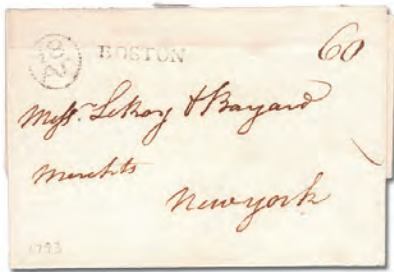 BOSTON 60
Messrs. LeRoy & Bayard
Merchts
New york
1793